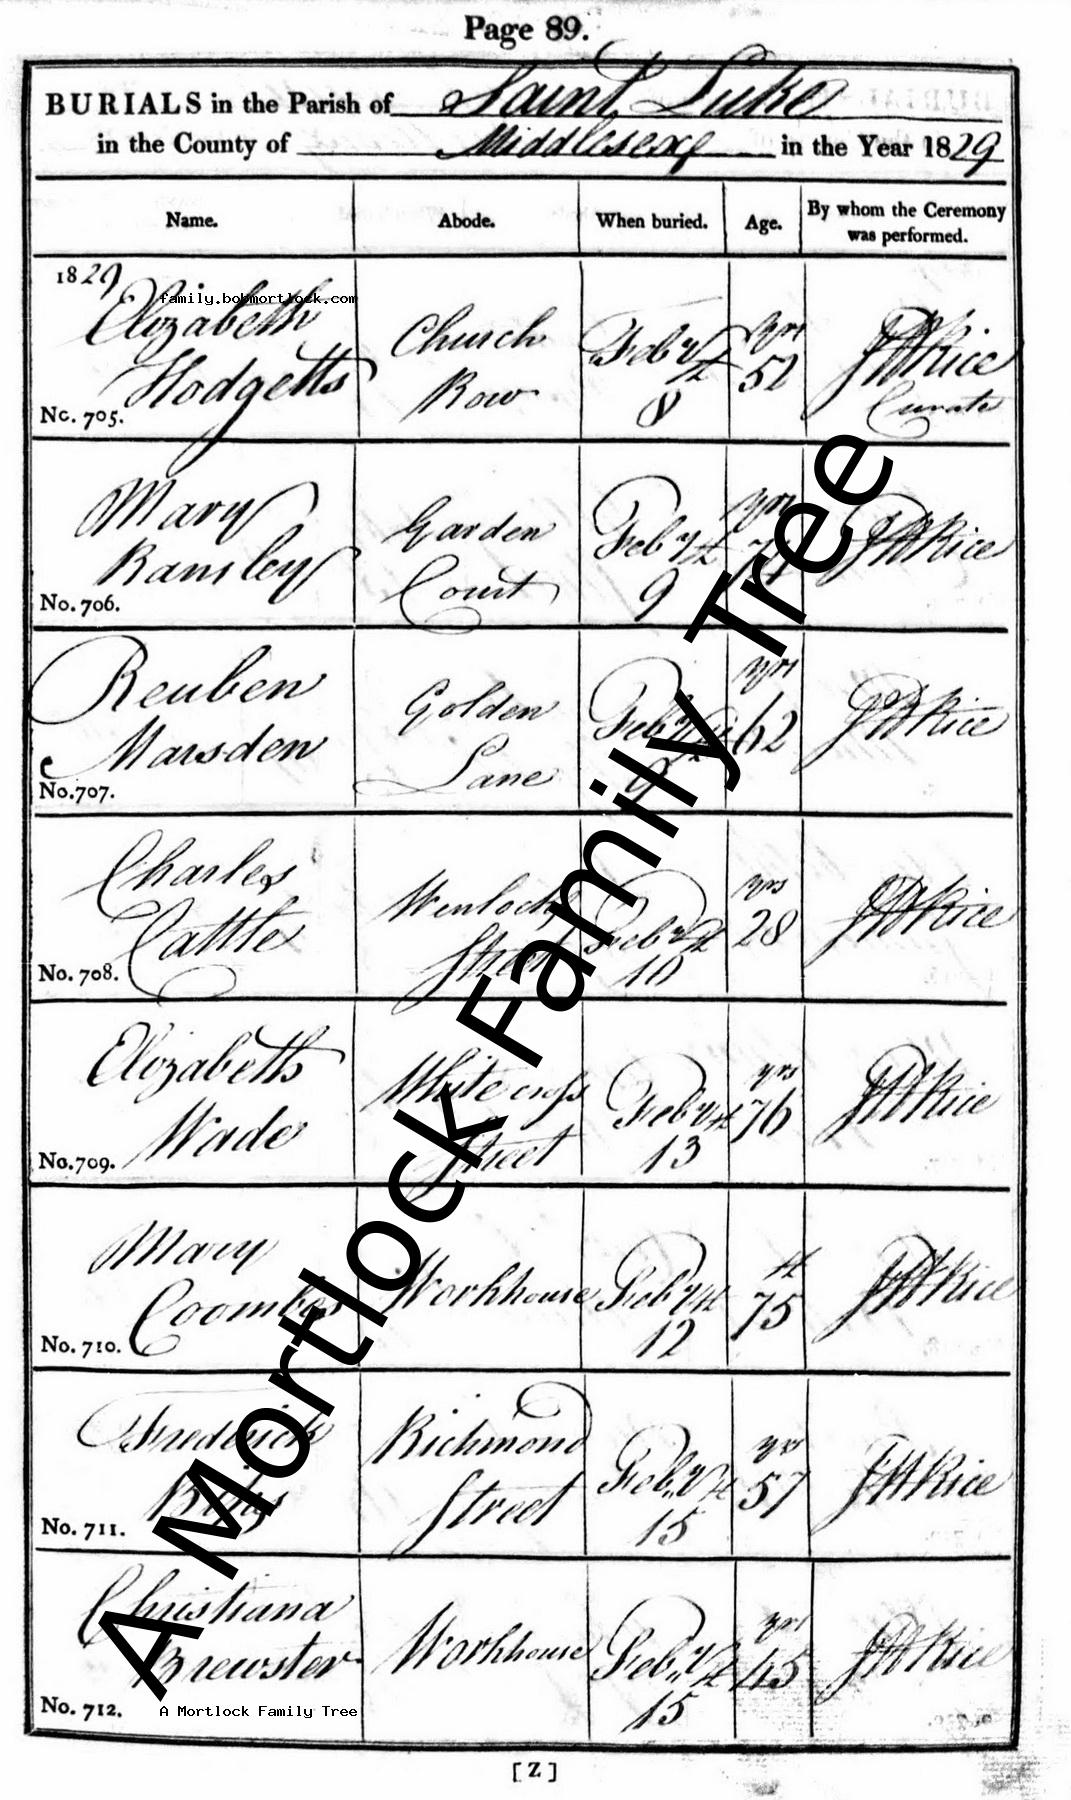 Page 89.
BURIALS in the Parish of Saint Luke
in the County of Middlesex in the Year 1829
Name. Abode. When buried. Age. By whom the Ceremony was performed.
1829
family.bobmortlock.com
Elizabeth Hodgetts Church Row Feby 8 yrs 52 JW Rice Curate
No. 705.
Mary Ransley Garden Court Feby 9 yrs JW Rice
No. 706.
Reuben Marsden Golden Lane Feby 9 yrs 62 JW Rice
No. 707.
Charles Cattle Wenlock Street Feby 10 yrs 28 JW Rice
No. 708.
Elizabeth Wade White cross Street Feby 13 yrs 76 JW Rice
No. 709.
Mary Coombes Workhouse Feby 12 75 JW Rice
No. 710.
Frederick Richmond Street Feby 15 yrs 57 JW Rice
No. 711.
Christiana Brewster Workhouse Feby 15 yrs 45 JW Rice
No. 712.
A Mortlock Family Tree
A Mortlock Family Tree
[ Z ]